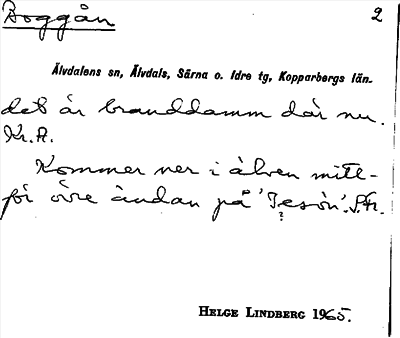 Boggån 2
Älvdalens sn, Älvdals, Särna o. Idre tg, Kopparbergs län.
det är branddamm där nu.
Kr. A.
Kommer ner i älven mitt-
för övre ändan på
?
HELGE LINDBERG 1965.